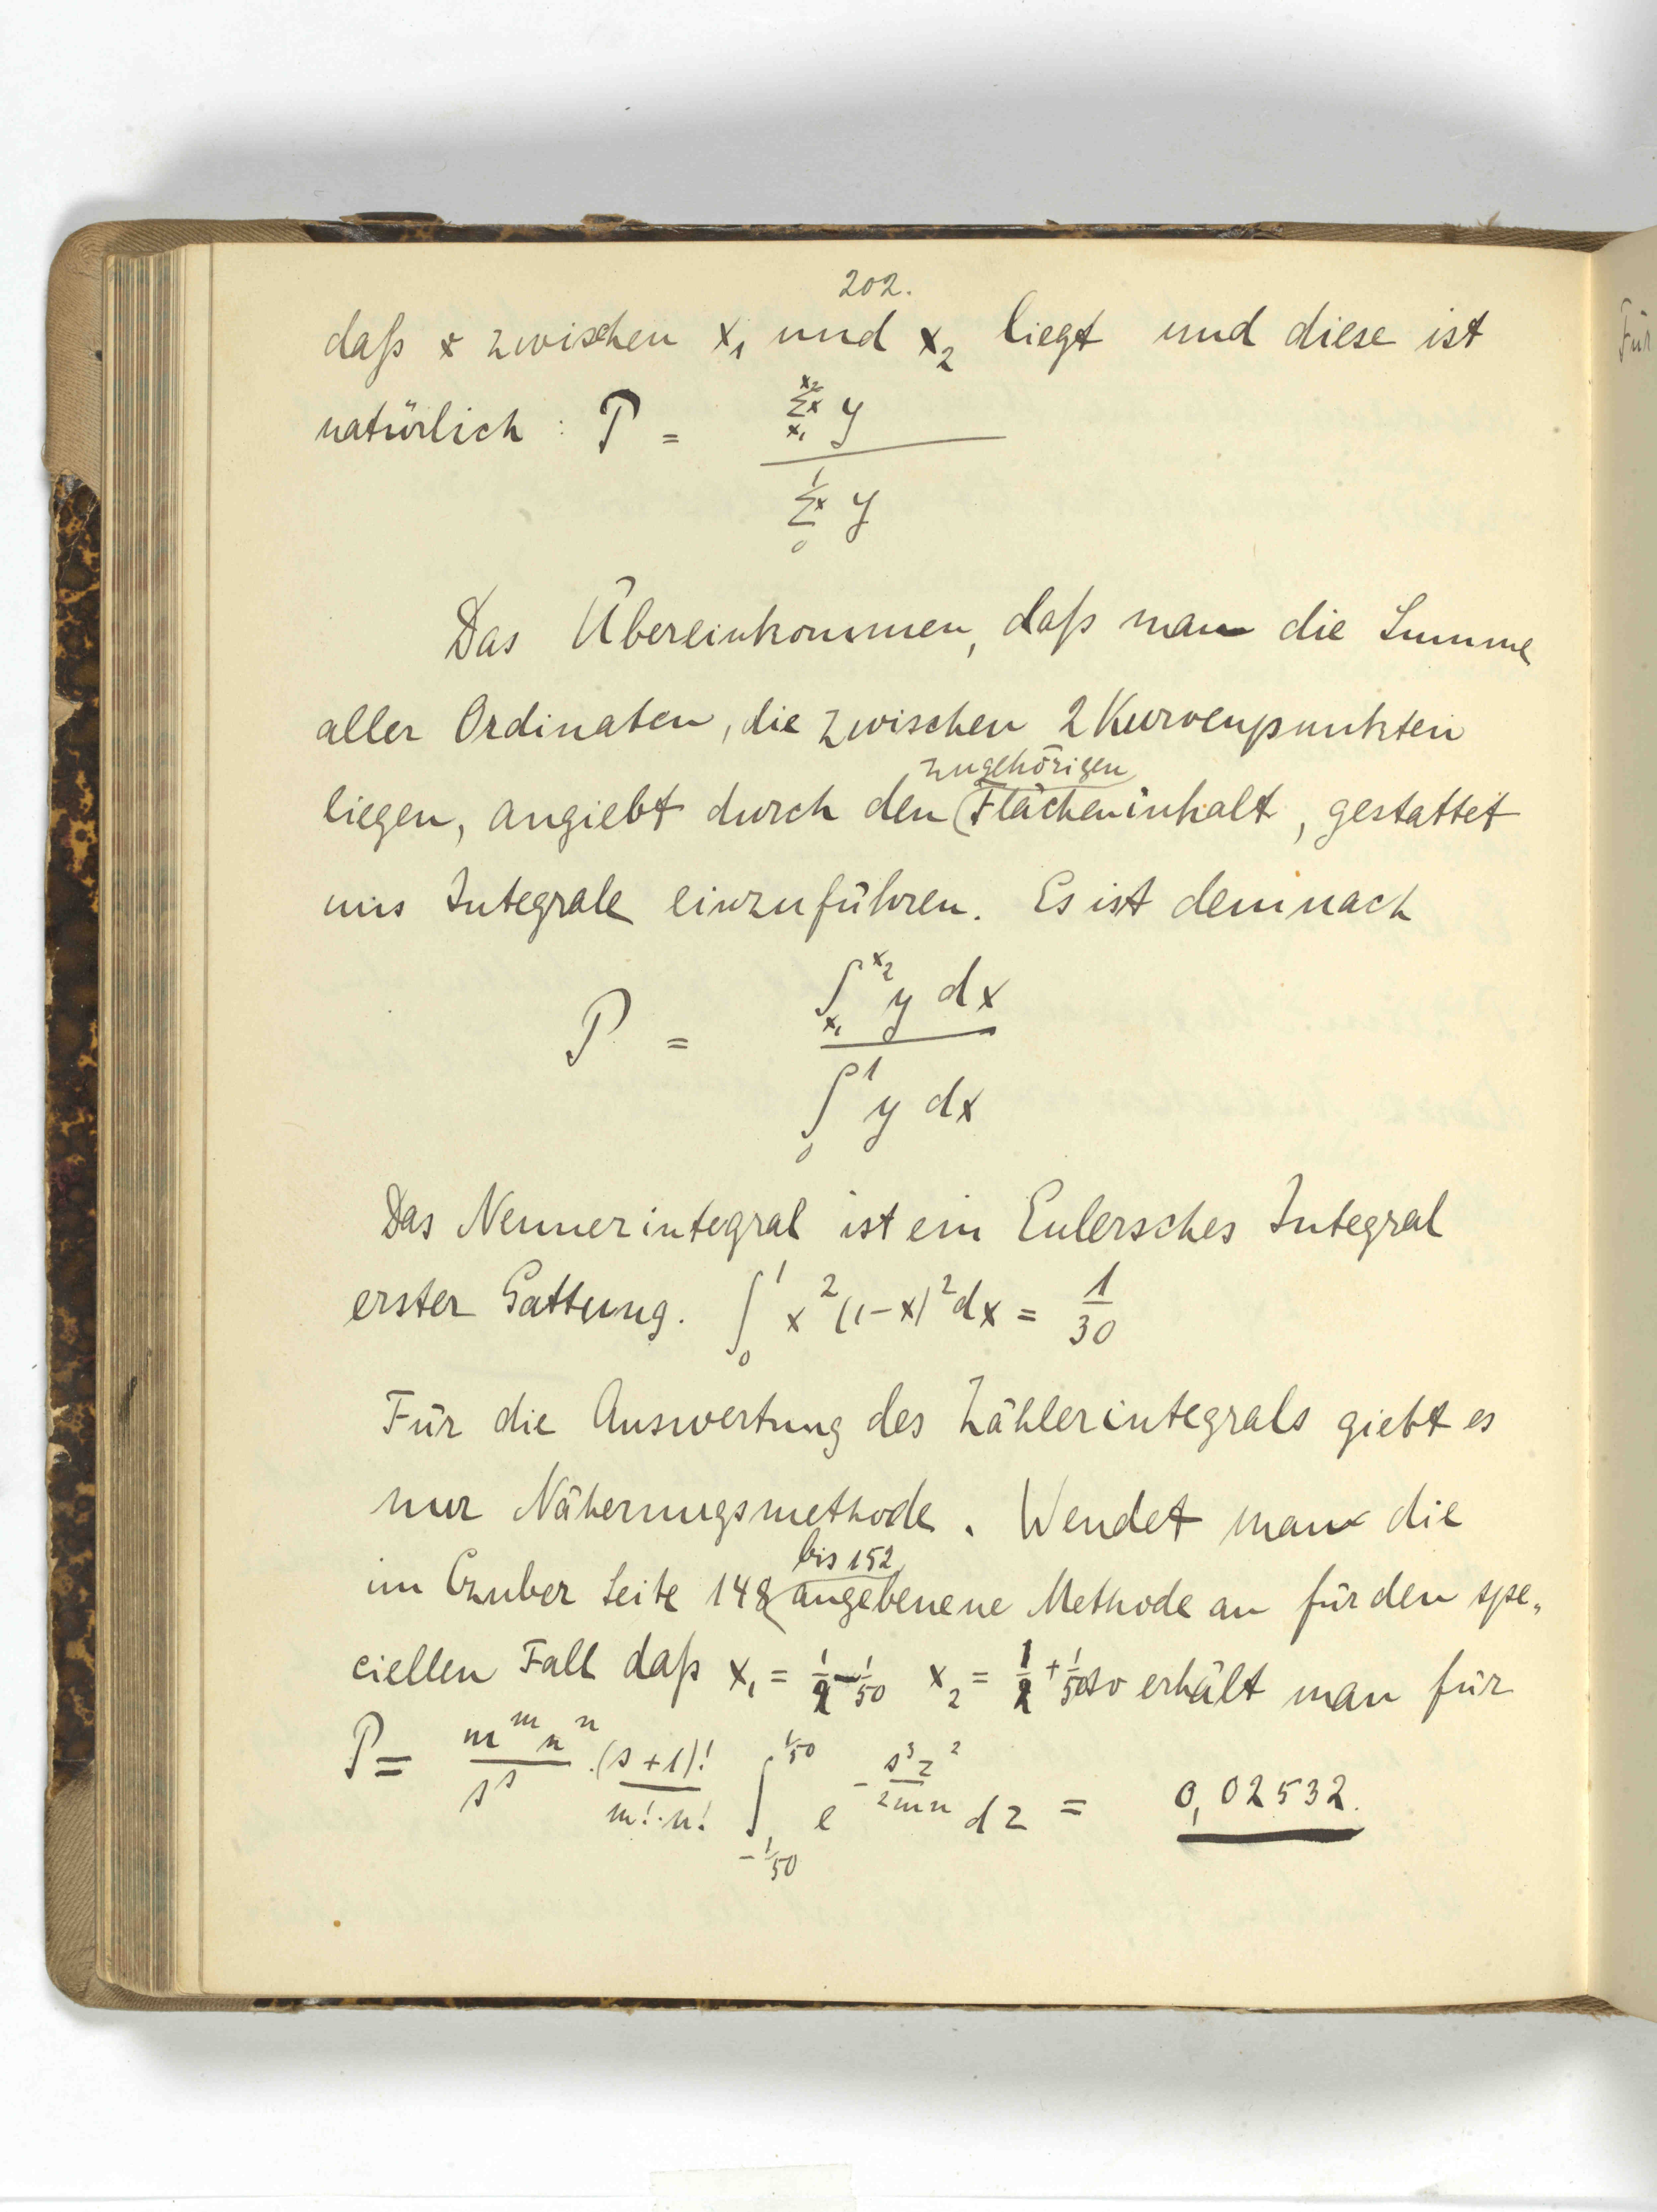 202.
daß x zwischen x₁ und x₂ liegt und diese ist
natürlich : P = \frac{\sum_{x_1}^{x_2} x y}{\sum_{0}^{1} x y}
Das Übereinkommen, daß man die Summe
aller Ordinaten, die zwischen 2 Kurvenpunkten
zugehörigen
liegen, angiebt durch den (Flächeninhalt, gestattet
uns Integrale einzuführen. Es ist demnach
P = \frac{\int_{x_1}^{x_2} y dx}{\int_{0}^{1} y dx}
Das Nennerintegral ist ein Eulersches Integral
erster Gattung. \int_{0}^{1} x^2 (1-x)^2 dx = \frac{1}{30}
Für die Auswertung des Zählerintegrals giebt es
nur Näherungsmethode. Wendet man die
bis 152
im Czuber Seite 148 angebenene Methode an für den spe„
ciellen Fall daß x₁ = \frac{1}{2} - \frac{1}{50} x₂ = \frac{1}{2} + \frac{1}{50} so erhält man für
P = \frac{m^m n^n}{s^s} \cdot \frac{(s+1)!}{m! \cdot n!} \int_{-\frac{1}{50}}^{\frac{1}{50}} e^{-\frac{s^3 z^2}{2mn}} dz = 0,02532.
Für